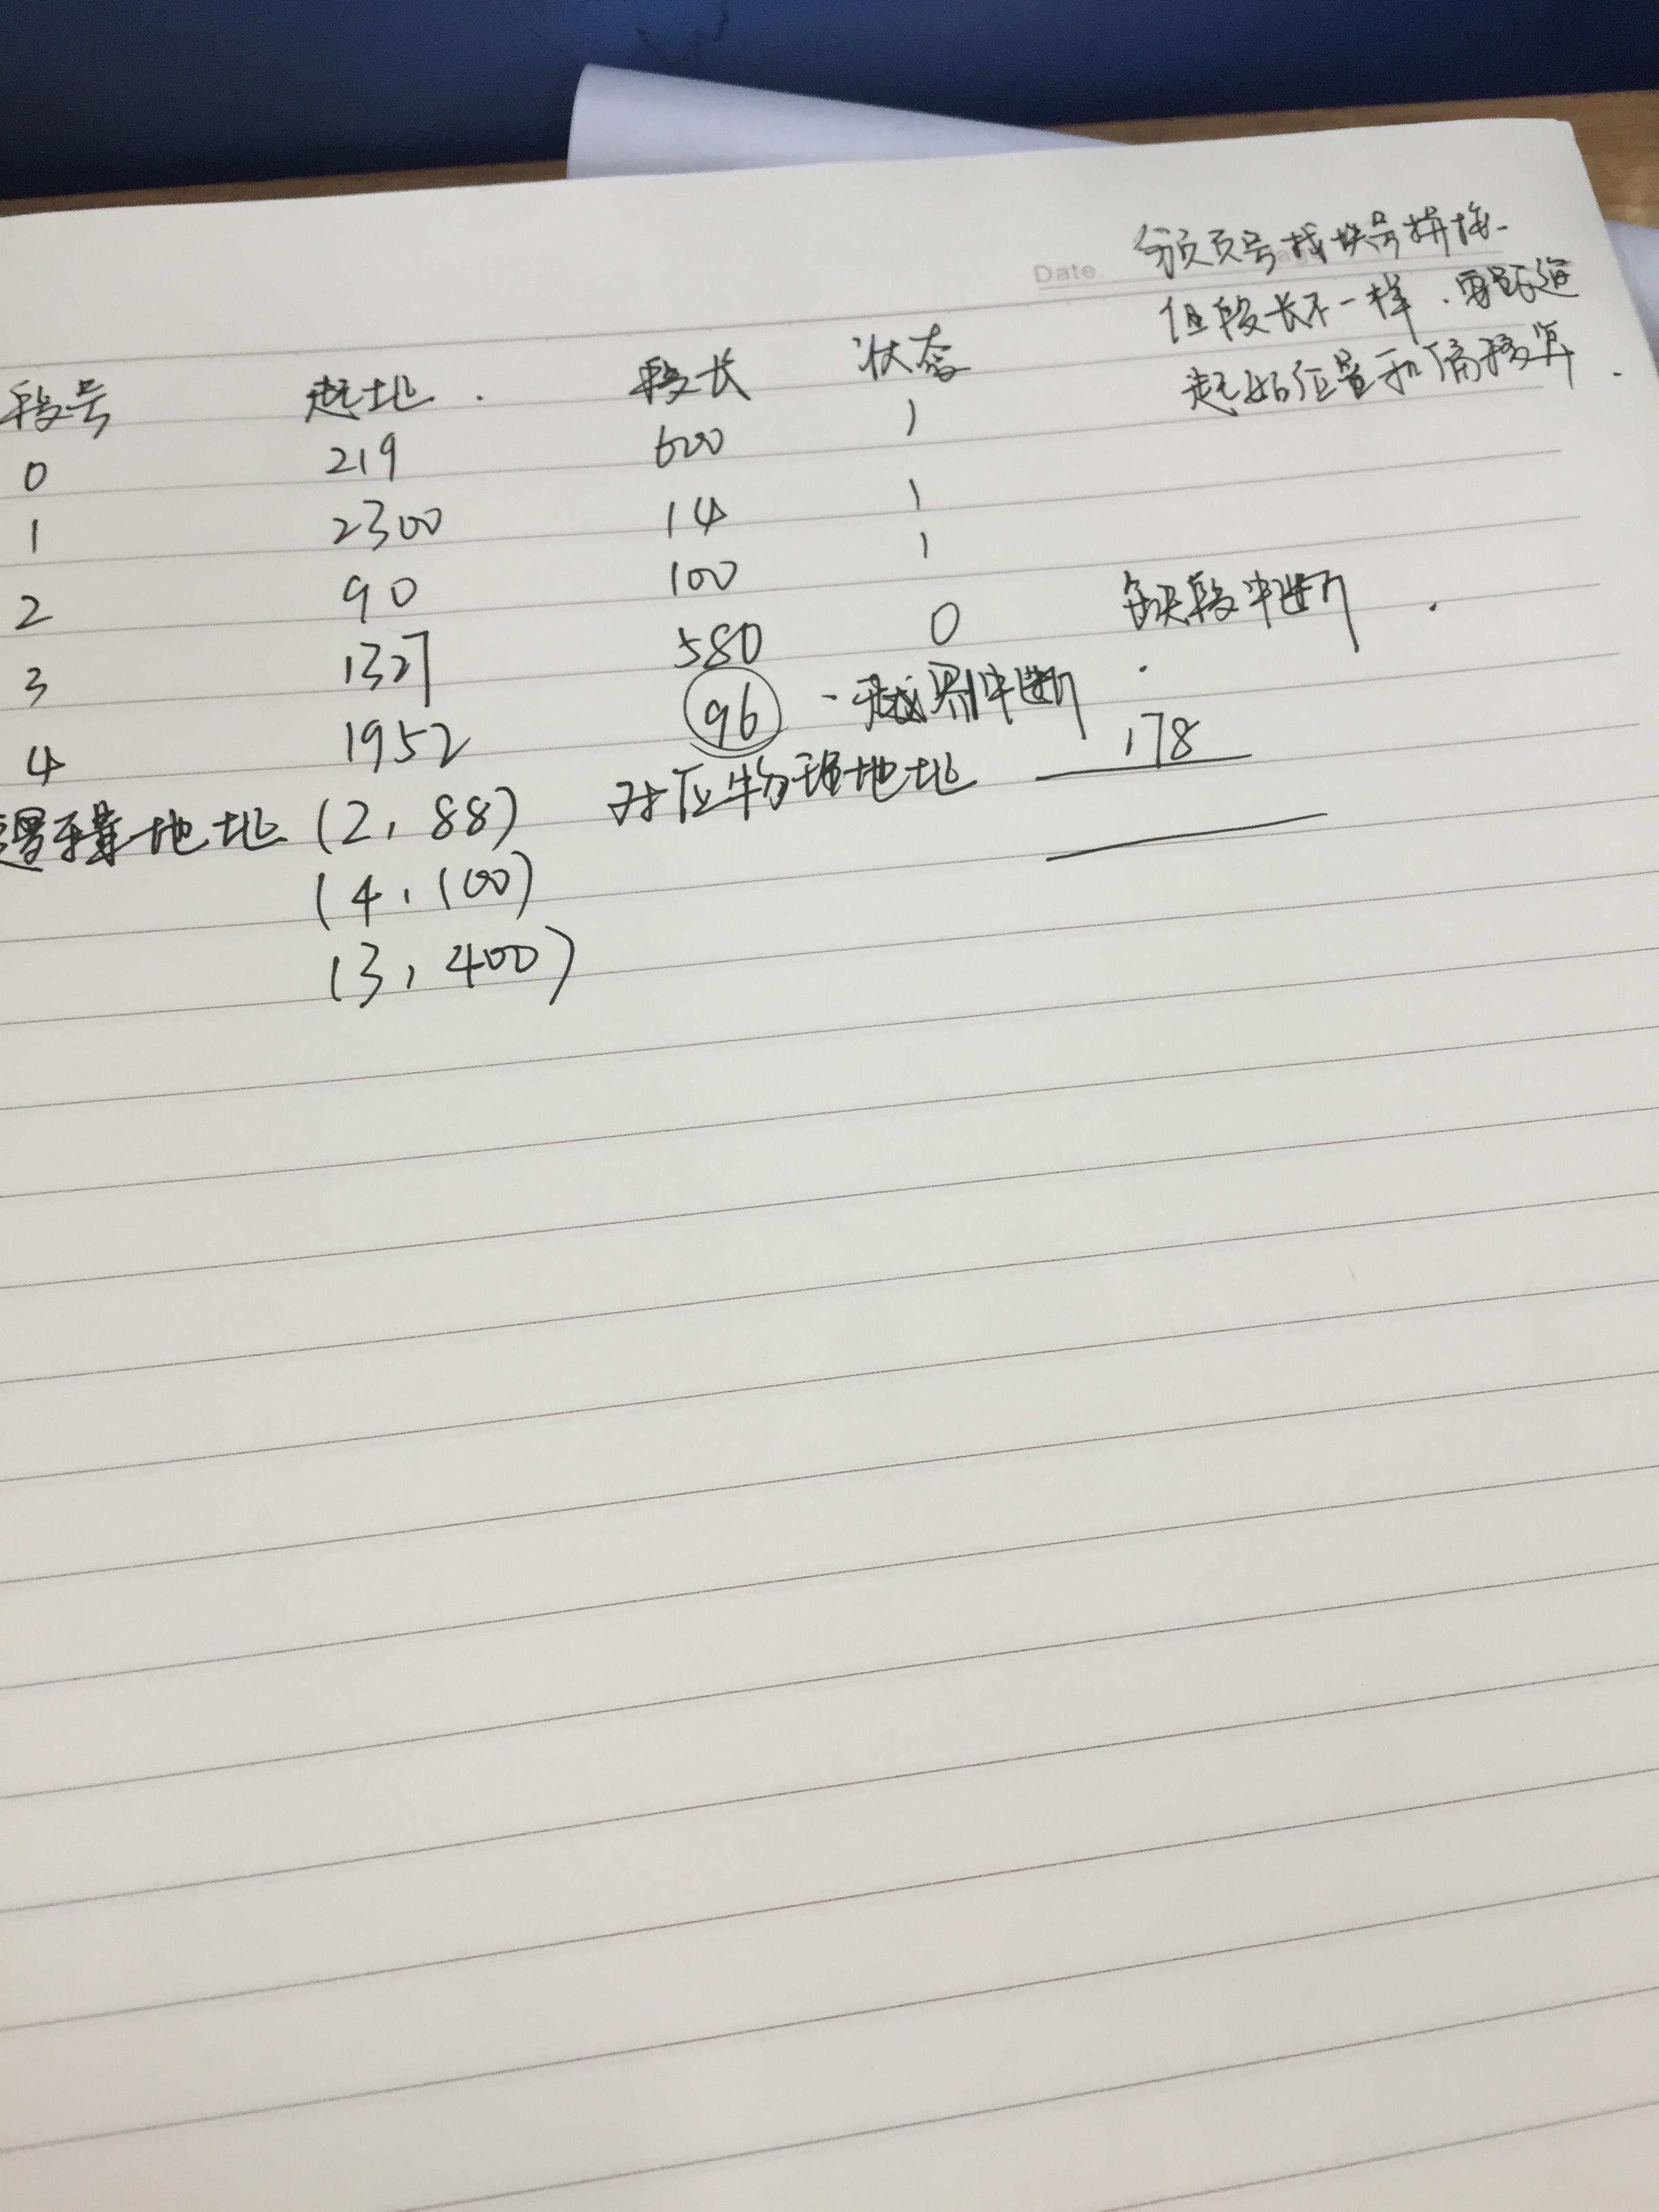 Date
分页页号找块号拼接.
但段长不一样.要跟进
起始位置和偏移算.
段号 起址. 段长 状态
0 219 600 1
1 2300 14 1
2 90 100 1
3 1327 580 0 缺段中断.
4 1952 96 - 越界中断.
逻辑地址 (2, 88) 对应物理地址 178
(4, 100)
(3, 400)